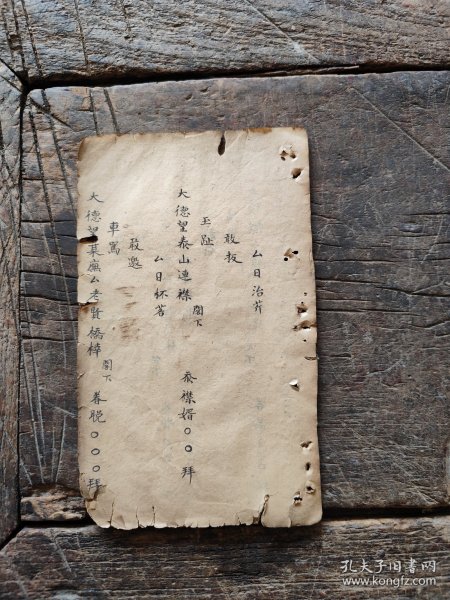 厶日治芹
敢扳
玉趾
大德望泰山連襟 閣下 忝襟婿〇〇拜
厶日杯茗
敢邀
車駕
大德望 厶老賢橋梓 閣下 眷晚〇〇〇拜
孔夫子旧书网
www.kongfz.com